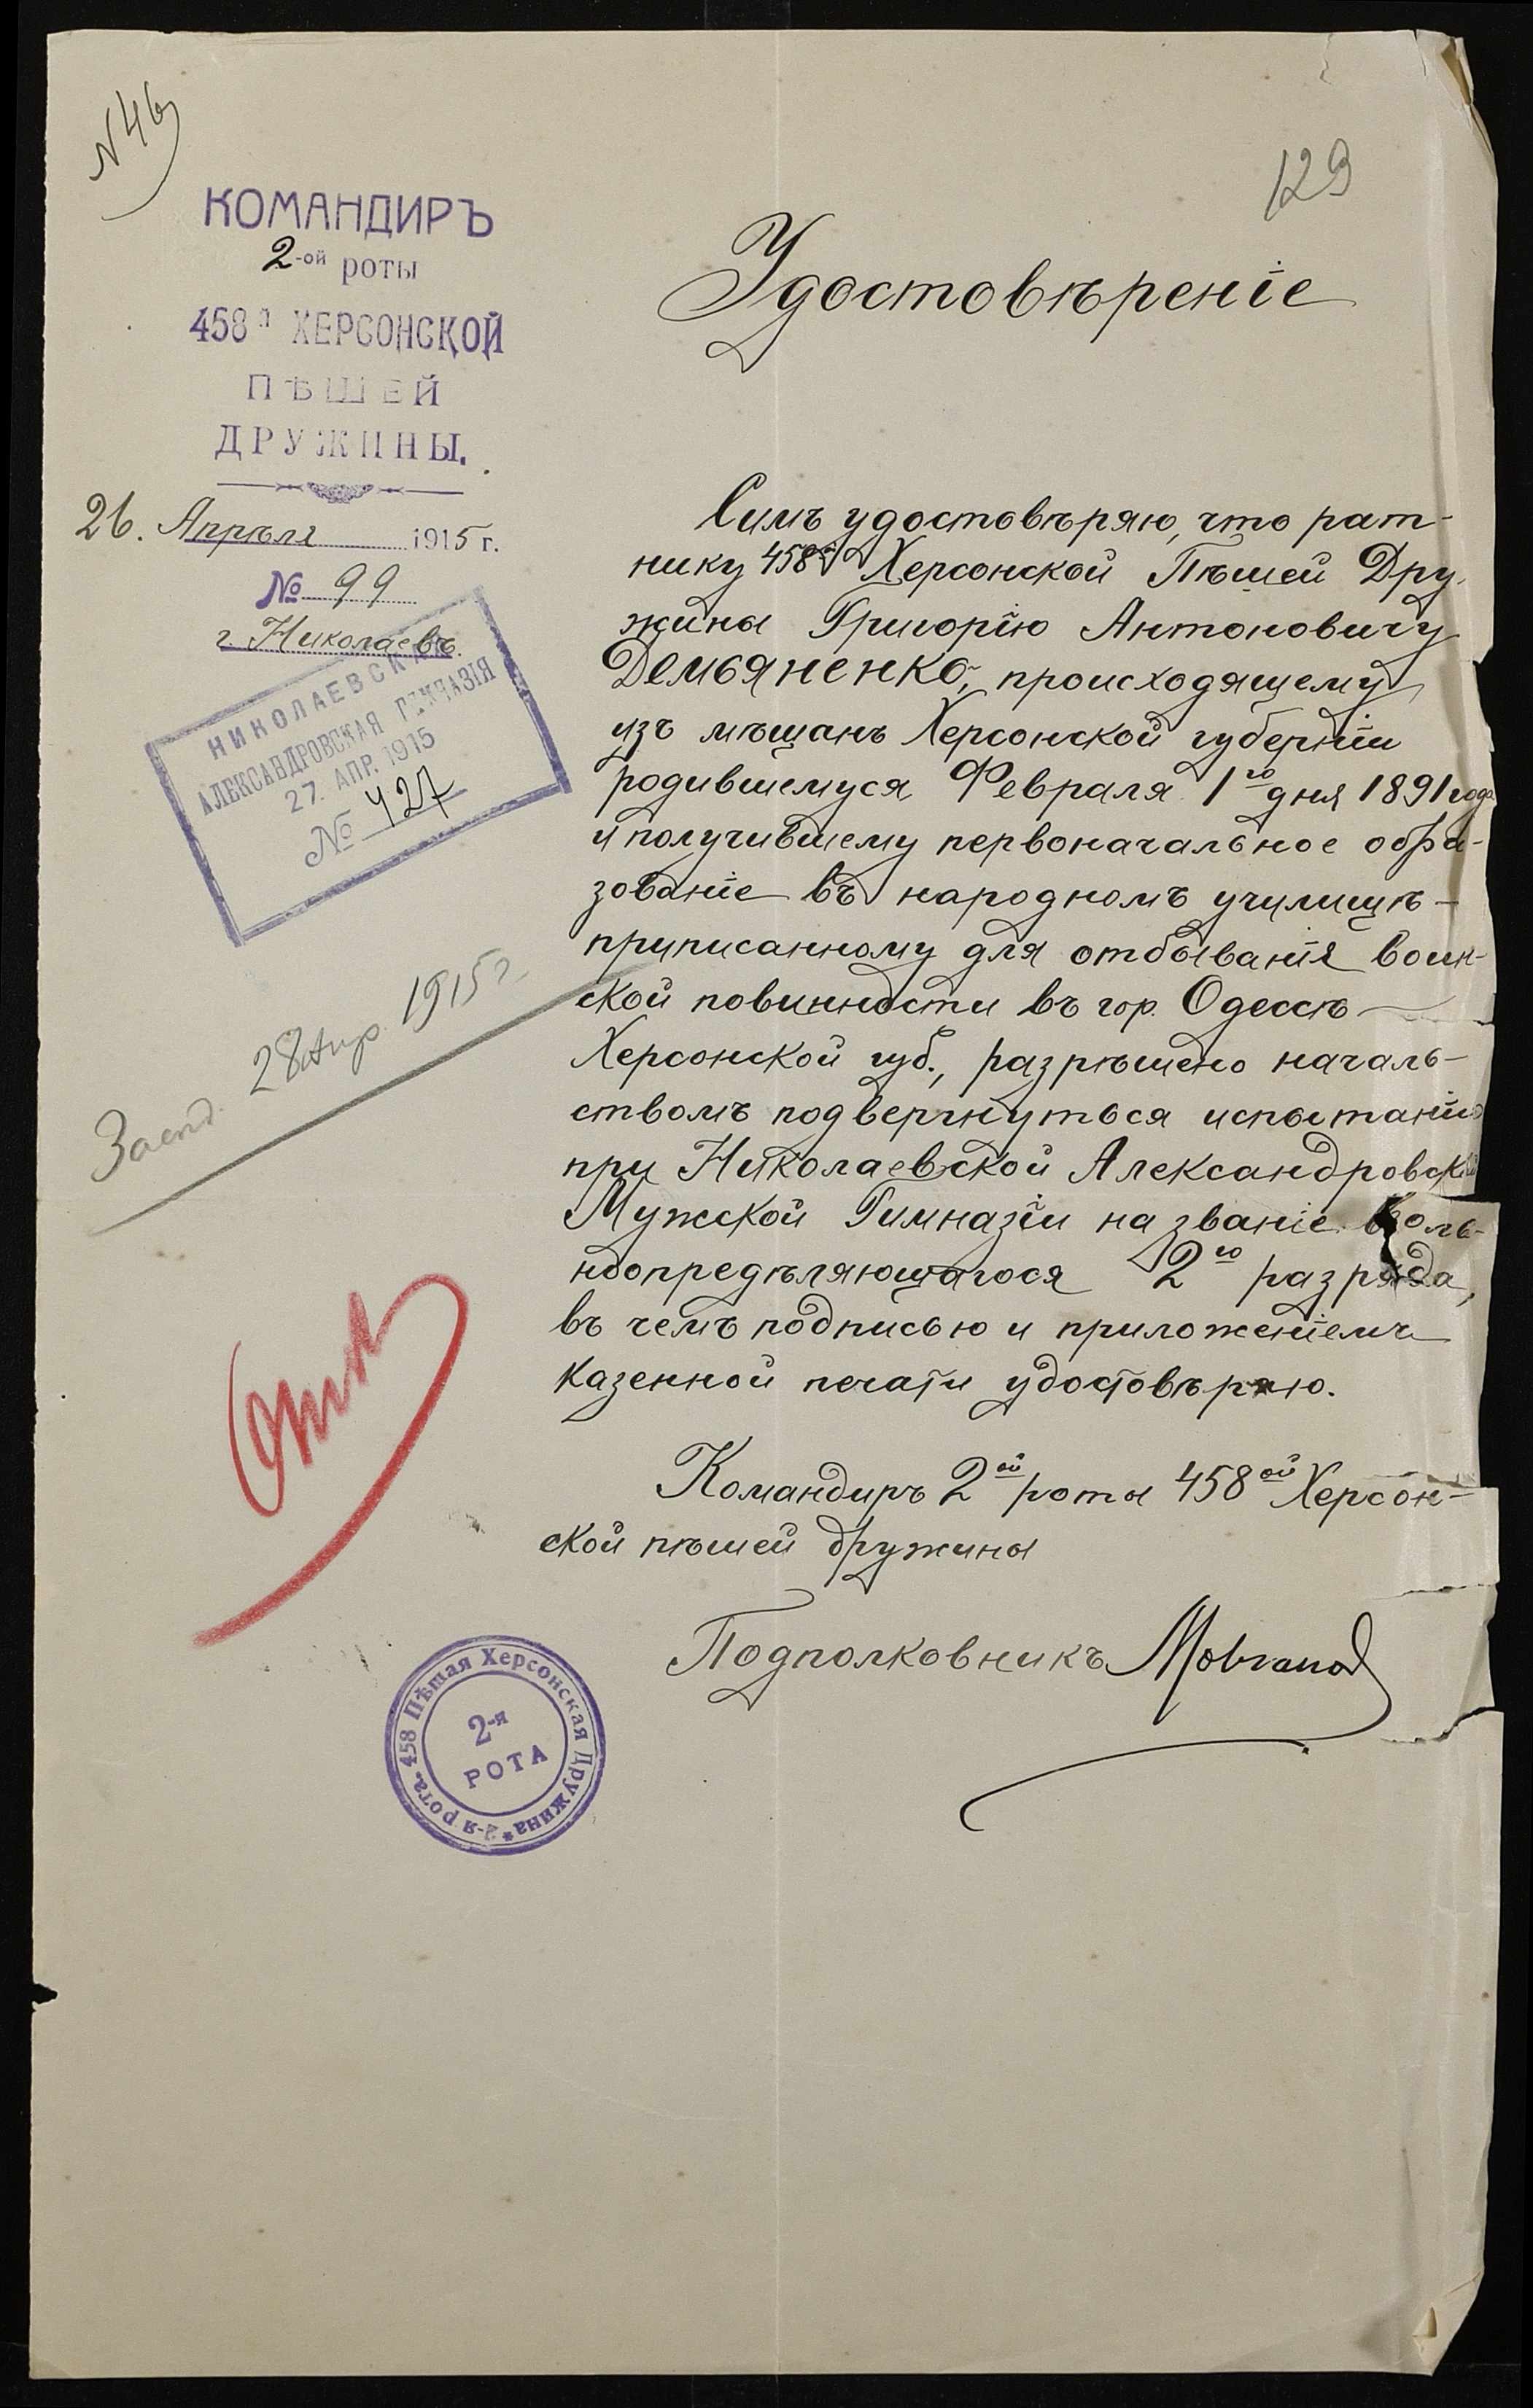 N 46
129
КОМАНДИРЪ
2-ой роты
458й ХЕРСОНСКОЙ
ПѢШЕЙ
ДРУЖИНЫ.
26. Апрѣля 1915 г.
№ 99
г. Николаевъ.
НИКОЛАЕВСКАЯ
АЛЕКСАНДРОВСКАЯ ГИМНАЗІЯ
27. АПР. 1915
№ 427
28 Апр. 1915 г
Удостовѣреніе
Симъ удостовѣряю, что рат-
нику 458й Херсонской Пѣшей Дру-
жины Григорію Антоновичу
Демьяненко, происходящему
изъ мѣщанъ Херсонской губерніи
родившемуся Февраля 1го дня 1891 года
и получившему первоначальное обра-
зованіе въ народномъ училищѣ -
приписанному для отбыванія воин-
ской повинности въ гор. Одессѣ
Херсонской губ., разрѣшено началь-
ствомъ подвергнуться испытанію
при Николаевской Александровской
Мужской Гимназіи на званіе воль-
ноопредѣляющагося 2го разряда,
въ чемъ подписью и приложеніемъ
казенной печати удостовѣряю.
Командиръ 2ой роты 458ой Херсон-
ской пѣшей дружины
Подполковникъ
458 Пѣшая Херсонская Дружина * 2-я рота.
2-я
РОТА